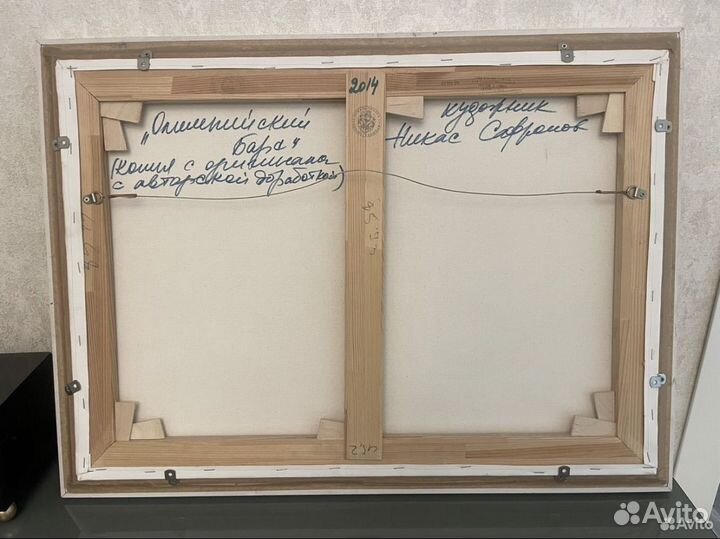 2014
„Олимпийский
барс"
(копия с оригинала
с авторской доработкой)
художник
Никас Сафронов
Avito
Avito